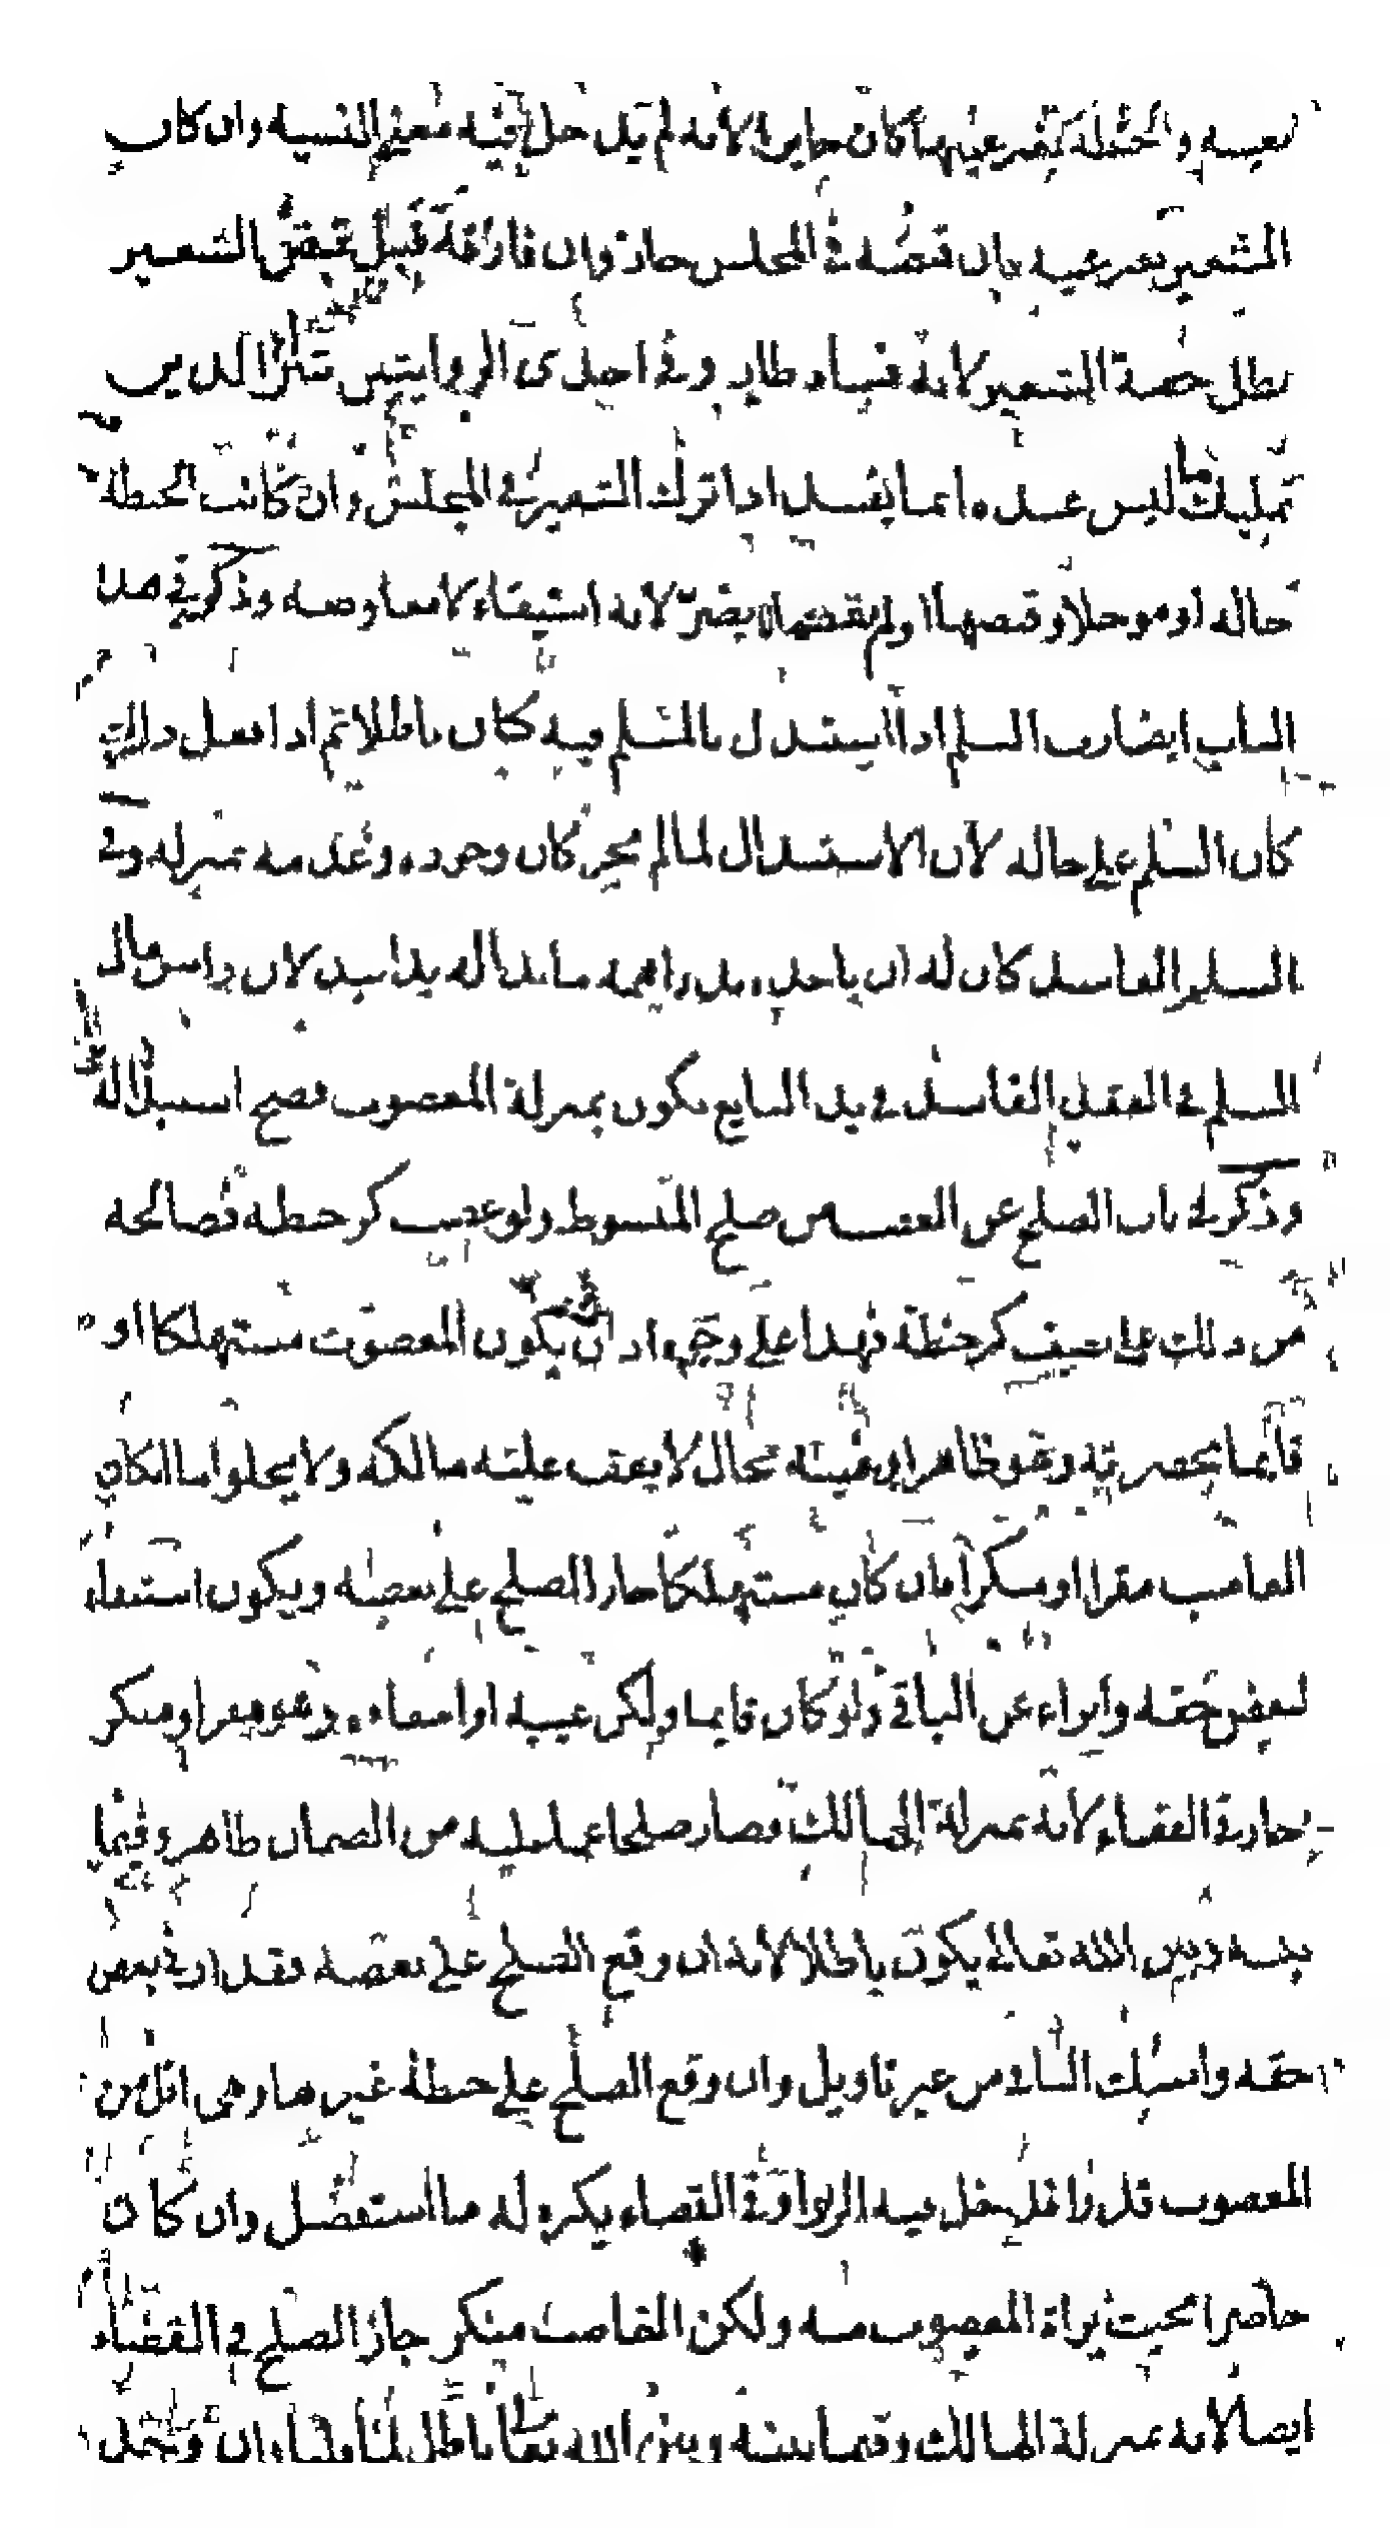 بعينه والحنطة بغير عينها كان جايزا لانه لم يدخل فيه معنى النسيه وان كان
الشعير بغير عينه فان قبضه في المجلس جاز وان فارقه قبل قبض الشعير
بطل حصة الشعير لانه فساد طار وفي احدى الروايتين لان الدين
تمليك ما ليس عنده انما يفسد اذا ترك الشعير في المجلس وان كانت الحنطة
حاله او موجلا وقبضها او لم يقبضها لا يضر لانه استيفاء لا معاوضه وذكر في هذا
الباب ايضا رب السلم اذا استبدل بالمسلم فيه كان باطلا ثم اذا فعل ذلك
كان السلم على حاله لان الاستبدال لما لم يجز كان وجوده وعدمه بمنزله وفي
السلم الفاسد كان له ان ياخذ بدراهمه ما بدا له يدا بيد لان راس مال
السلم في العقد الفاسد في يد البايع يكون بمنزلة المغصوب فصح استبداله
وذكر في باب الصلح عن الغصب من صلح المبسوط ولو غصب كر حنطه فصالحه
من ذلك على نصف كر حنطة فهذا على وجهين اما ان يكون المغصوب مستهلكا او
قائما بحضرته وهو ظاهر او غيبه بحال لا يقف عليه مالكه ولا يخلوا اما ان كان
الغاصب مقرا او منكرا فان كان مستهلكا جاز الصلح على نصفه ويكون استيفاء
لبعض حقه وابراء عن الباقي ولو كان قايما ولكن غيبه او اخفاه وهو مقر او منكر
جاز في القضاء لانه بمنزلة الهالك فصار صلحا عما عليه من الضمان ظاهر وفيما
بينه وبين الله تعالى يكون باطلا لانه ان وقع الصلح على نصفه فقد اوفى بعض
حقه وامسك الباقي من غير تاويل وان وقع الصلح على حنطة غيرها وهي اقل من
المغصوب قدرا فدخل فيه الربوا وفي القضاء يكره له ما استفضل وان كان
حاضرا بحيث يراه المغصوب منه ولكن الغاصب منكر جاز الصلح في القضاء
ايضا لانه بمنزلة الهالك وفيما بينه وبين الله تعالى باطل لما قلنا وان وجد